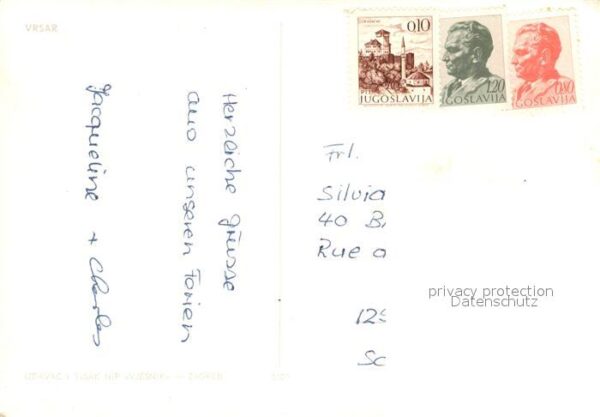 VRSAR
0.10
JUGOSLAVIJA
1.20
JUGOSLAVIJA
0.80
JUGOSLAVIJA
Herzliche Grüsse
aus unseren Ferien
Jacqueline + Charles
Frl.
Silvia
40 B
Rue
12
privacy protection
Datenschutz
IZDAVAČ I TISAK NIP »VJESNIK« — ZAGREB